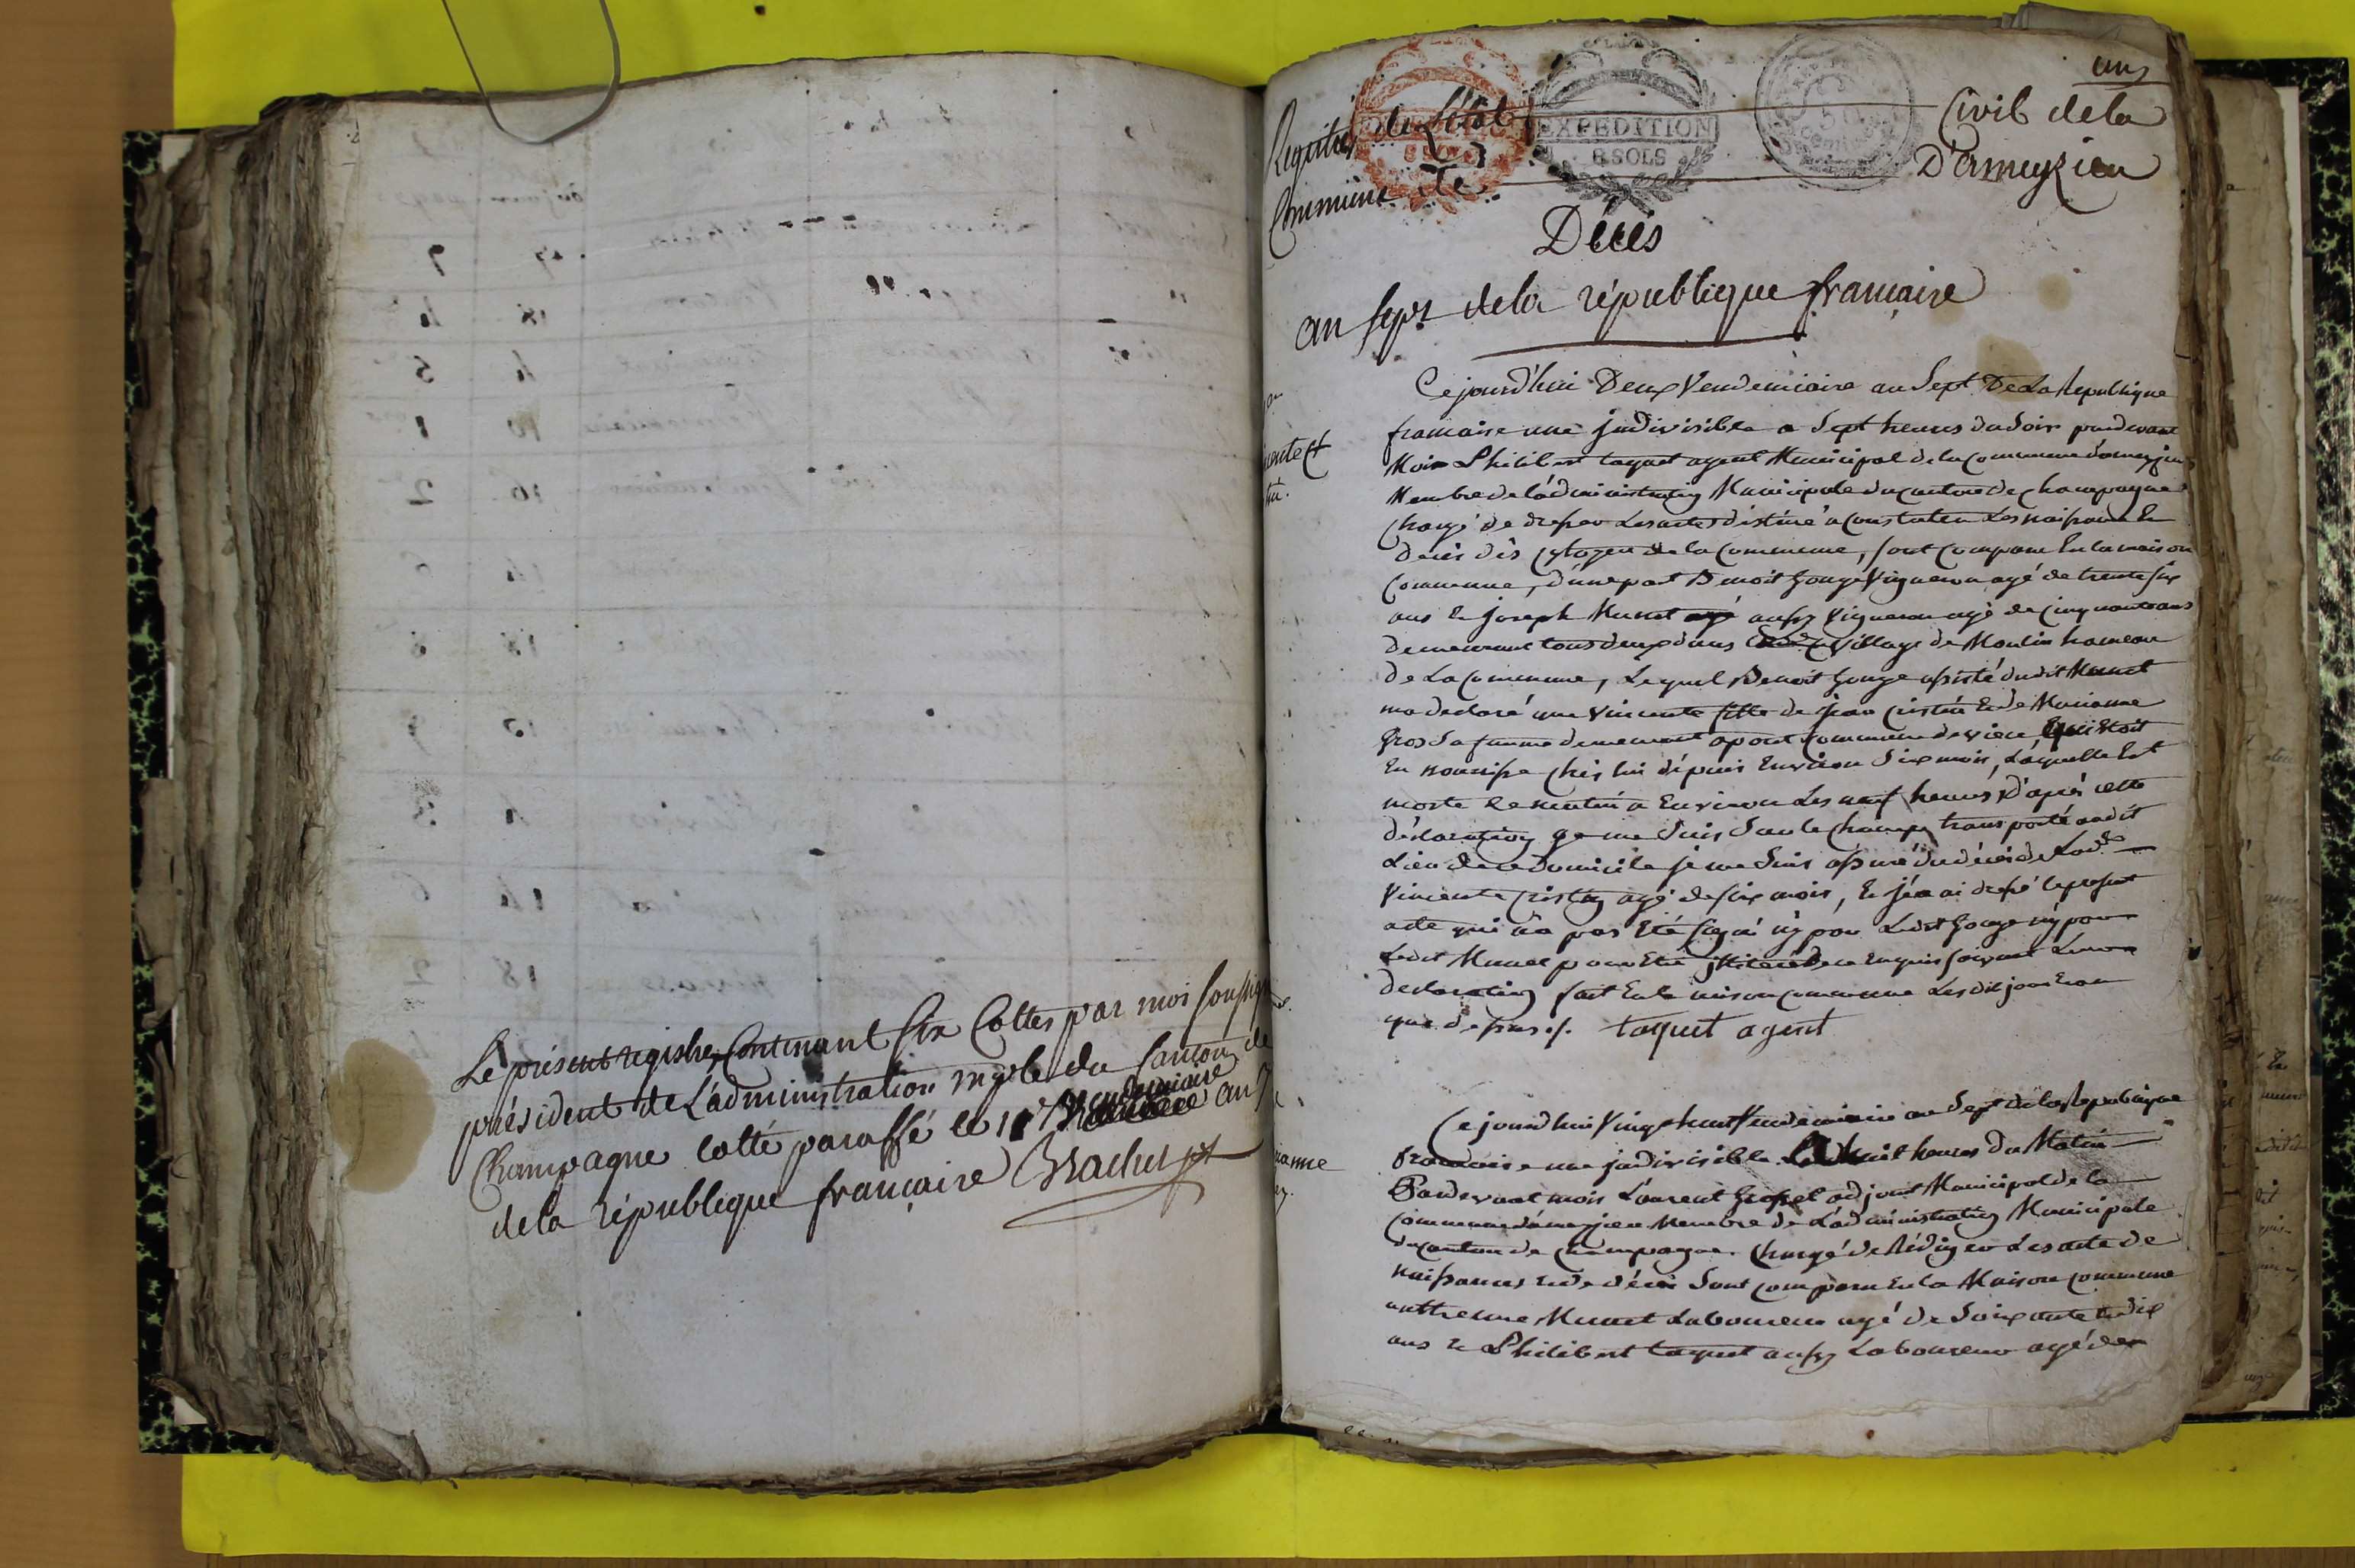 Le présent registre, Contenant Six Cottes par moi soussigné
président de L'administration mple du Canton de
Champagne cotté paraffé le 1er vendemiaire an 7
de la république française Brachet pt
un
Registre de L'état Civil de la
Commune De D'armeyzieu
EXPEDITION
8 SOLS
Décès
an Sept de la république française
Cejourd'hui Deux Vendemiaire an Sept De La Republique
francaise une jndivisible a Sept heures du Soir pardevant
Moi Philibert taquet agent Municipal de la commune dameyzieu
Membre de l'administration Municipale du canton de Champagne
Chargé de dresser Les actes destiné a Constater Les naissance Et
Décès dès Cytoyen de la Commune, sont Comparu En la maison
Commune, d'une part Benoit gouge Vigneron agé de trente six
ans Et joseph Munet aussy Vigneron agé de cinquante ans
demeurant tous deux dans village de Moulin hameau
De La Commune, Lequel Benoit gouge assisté dudit Munet
ma declaré que Vincente fille de jean cristin Et de Marianne
gros Sa femme demeurant a pont commune de vieu qui Etoit
En nourisse chés lui dépuis Environ Six mois, Laquelle Est
morte Ce matin a Environ Les neuf heures, D'aprés cette
déclaration je me Suis Sur le Champ transporté audit
Lieu de ce Domicile je me Suis assuré du décés de Ladte
Vincente cristin agé de six mois, Et j'en ai dressé le present
acte qui n'a pas Eté signé ny par Ledit gouge ny par
Ledit Munet pour Etre jlliteré de ce Enquis suivant Leur
declaration fait En la maison commune Les dit jour Et an
que dessus ./. taquet agent
Cejourdhui Vingt huit Vendemiaire an Sept de la Republique
francaise une jndivisible a huit heures du Matin
Pardevant mois Laurent grosset adjoint Municipal de la
Commune dameyzieu Membre de L'administration Municipale
du canton de Champagne. Chargé de Rédiger Les acte de
naissances Et de décés Sont comparu En la Maison commune
anthelme Munet Laboureur agé de Soixante dix
ans Et Philibert taquet aussy Laboureur agé de